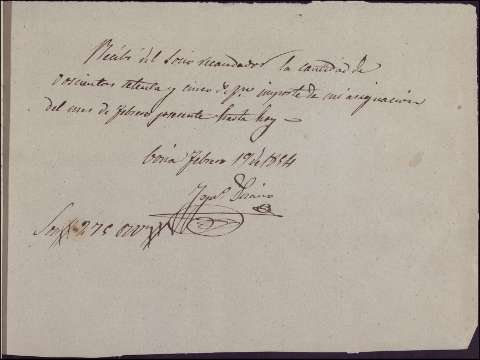 Recibí del Socio recaudador la cantidad de
doscientos setenta y cinco de que importe de mi asignacion
del mes de Febrero presente hasta hoy
Febrero 19 de 1854
Son 275